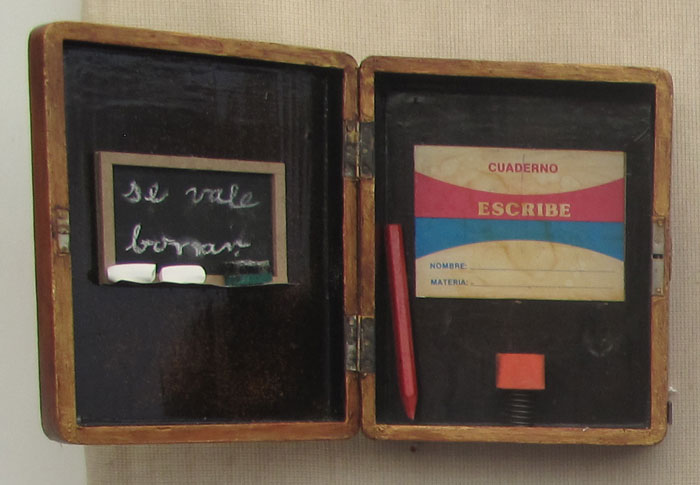 se vale
borrar
CUADERNO
ESCRIBE
NOMBRE:
MATERIA: